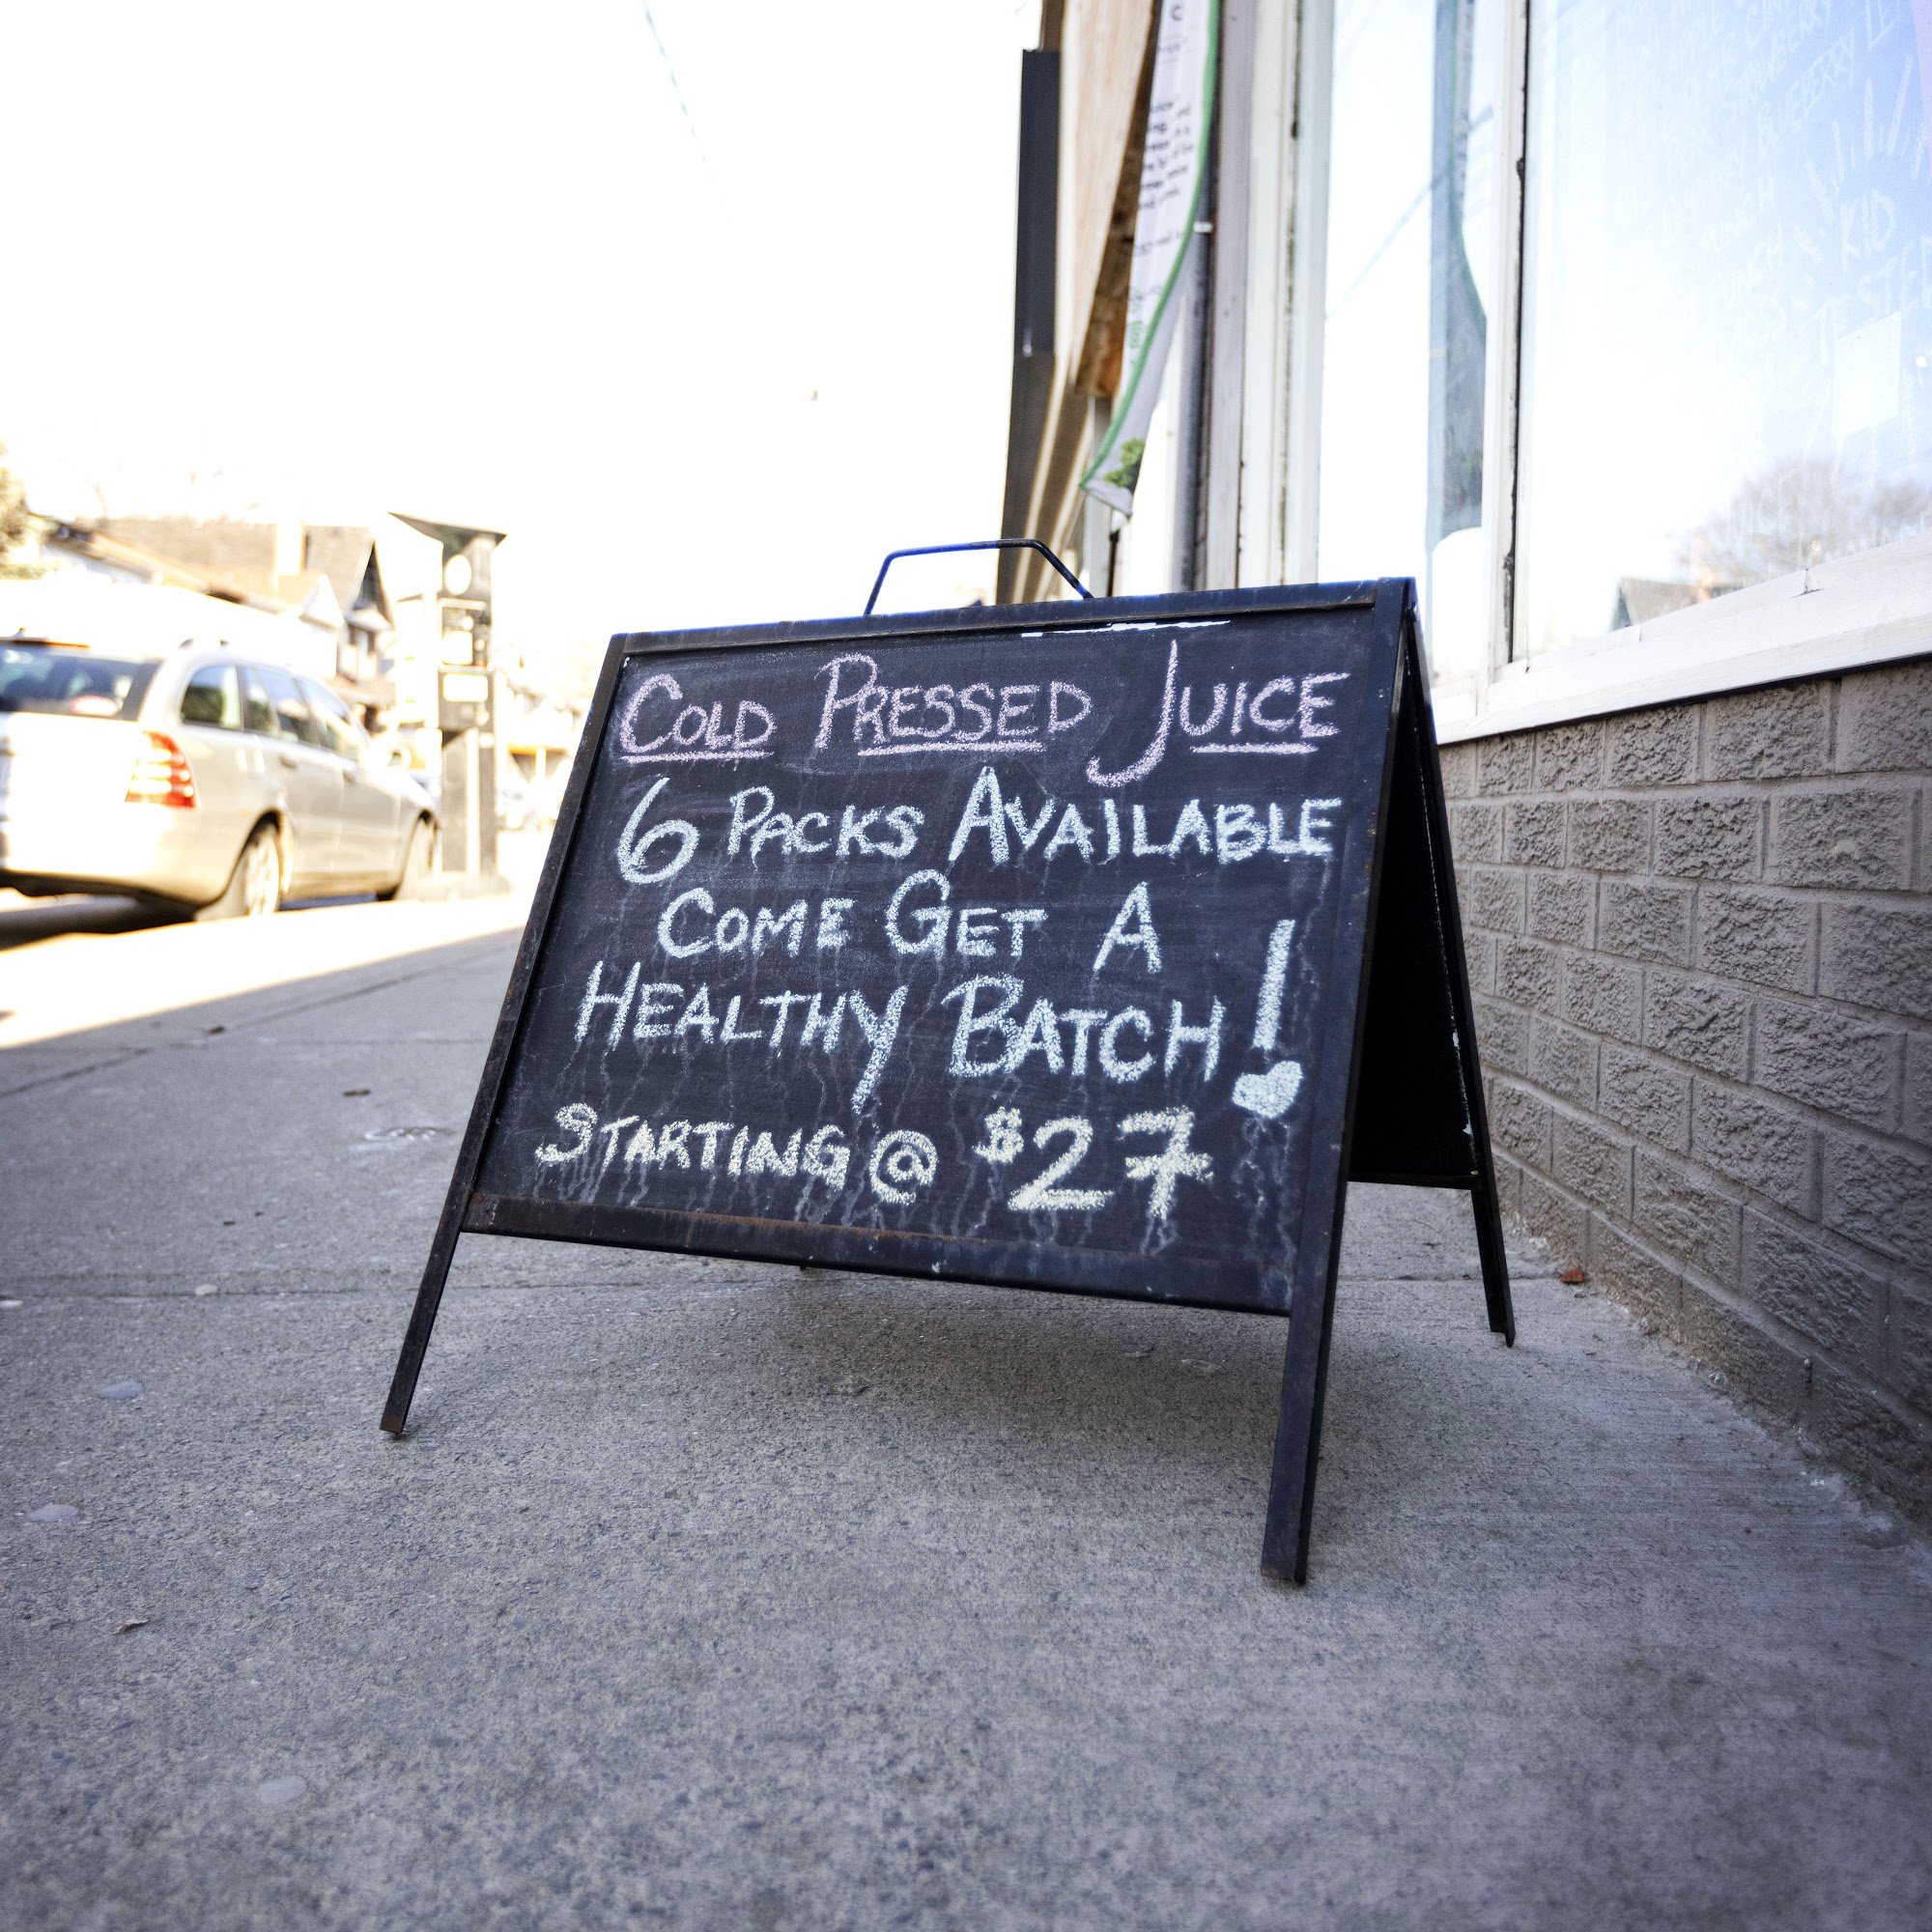 COLD PRESSED JUICE
6 PACKS AVAILABLE
COME GET A
HEALTHY BATCH!
STARTING @ $27
BLUEBERRY
KID